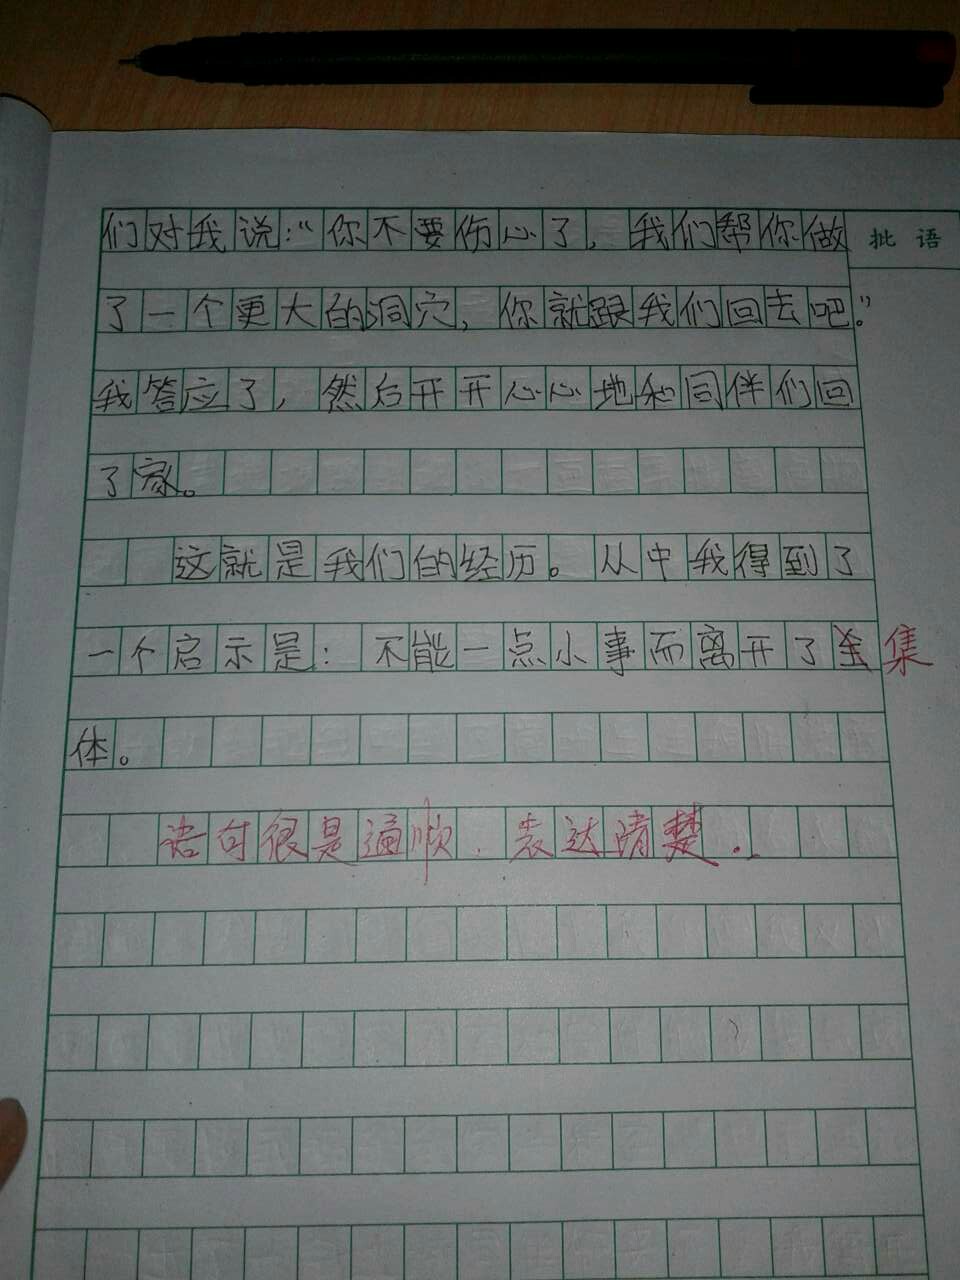 们对我说：“你不要伤心了，我们帮你做
批语
了一个更大的洞穴，你就跟我们回去吧。”
我答应了，然后开开心心地和同伴们回
了家。
这就是我们的经历。从中我得到了
一个启示是：不能一点小事而离开了集
体。
语句很是通顺．表达清楚．